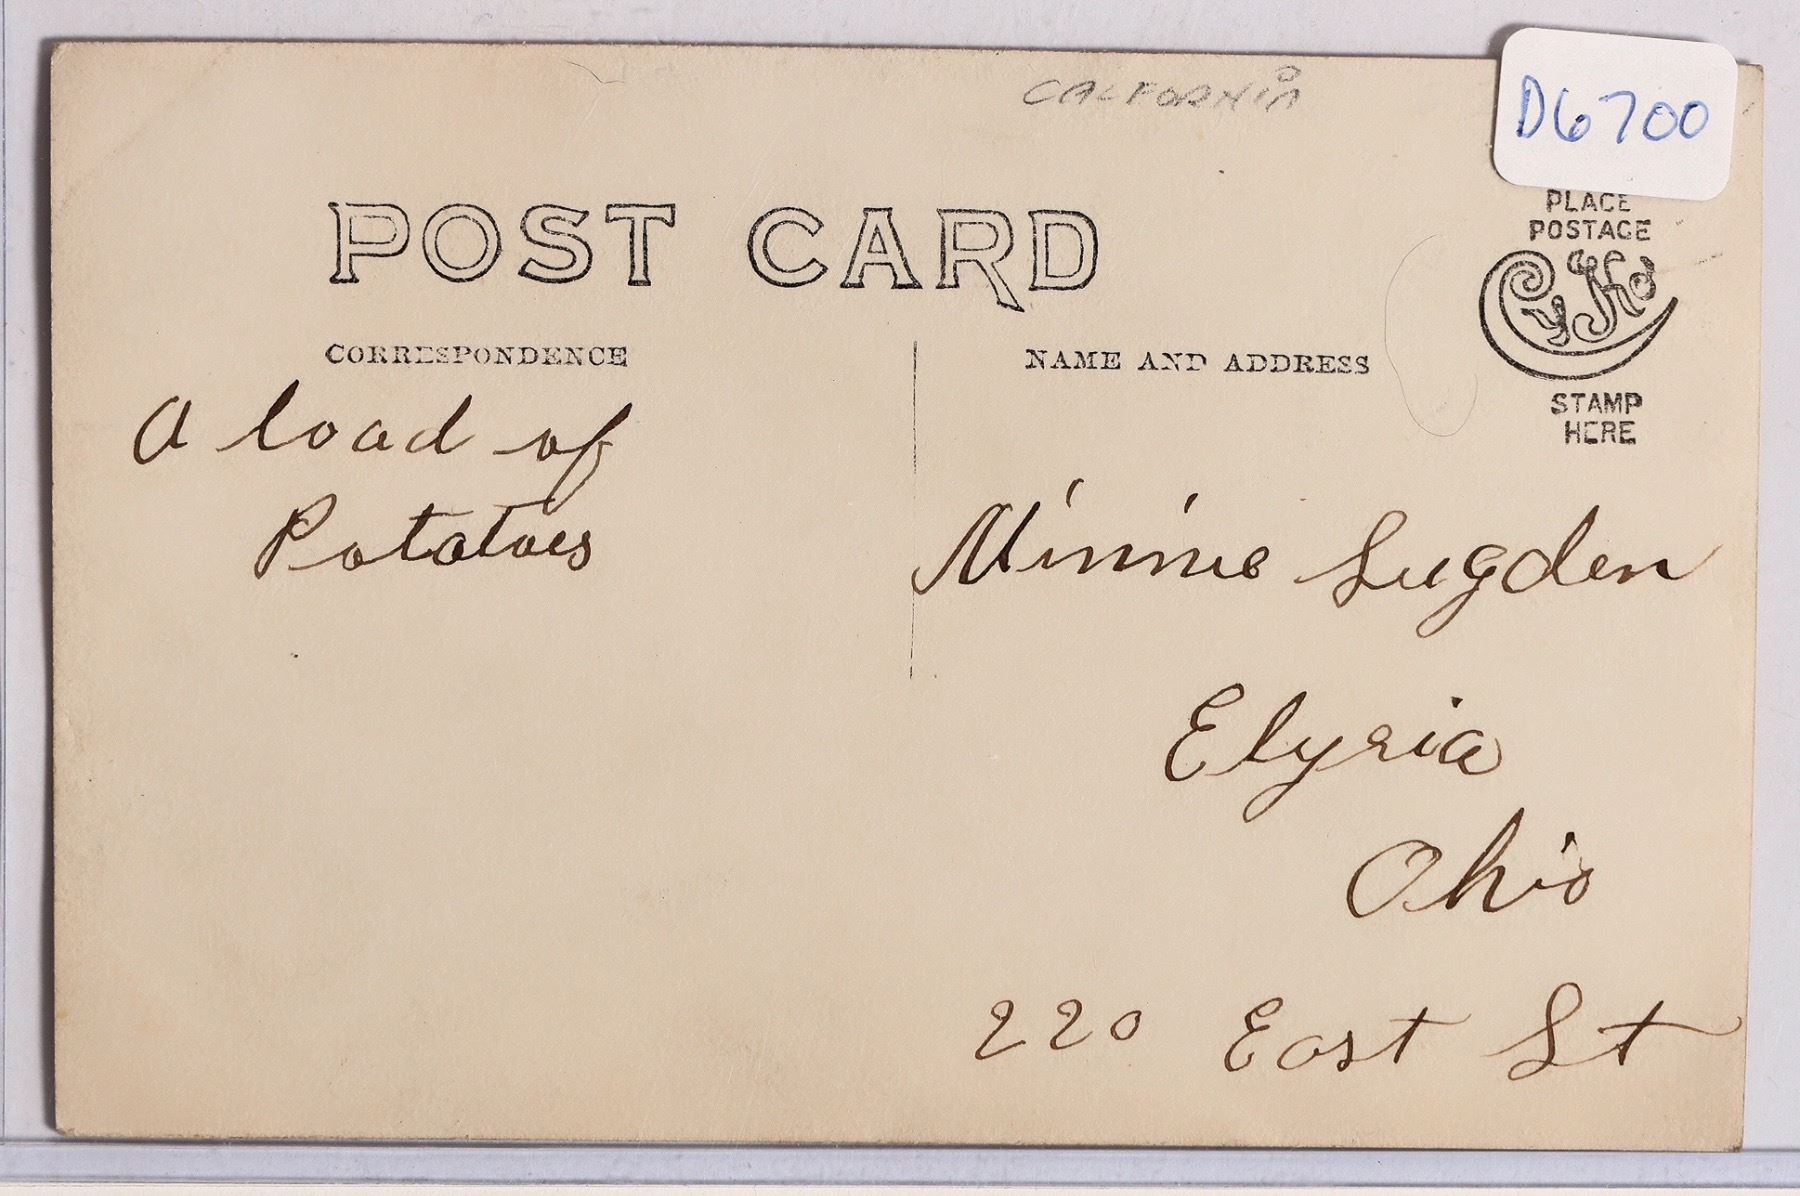 CALIFORNIA
D6700
POST CARD
PLACE
POSTAGE
CYKO
STAMP
HERE
CORRESPONDENCE
NAME AND ADDRESS
A load of
Potatoes
Minnie Sugden
Elyria
Ohio
220 East St